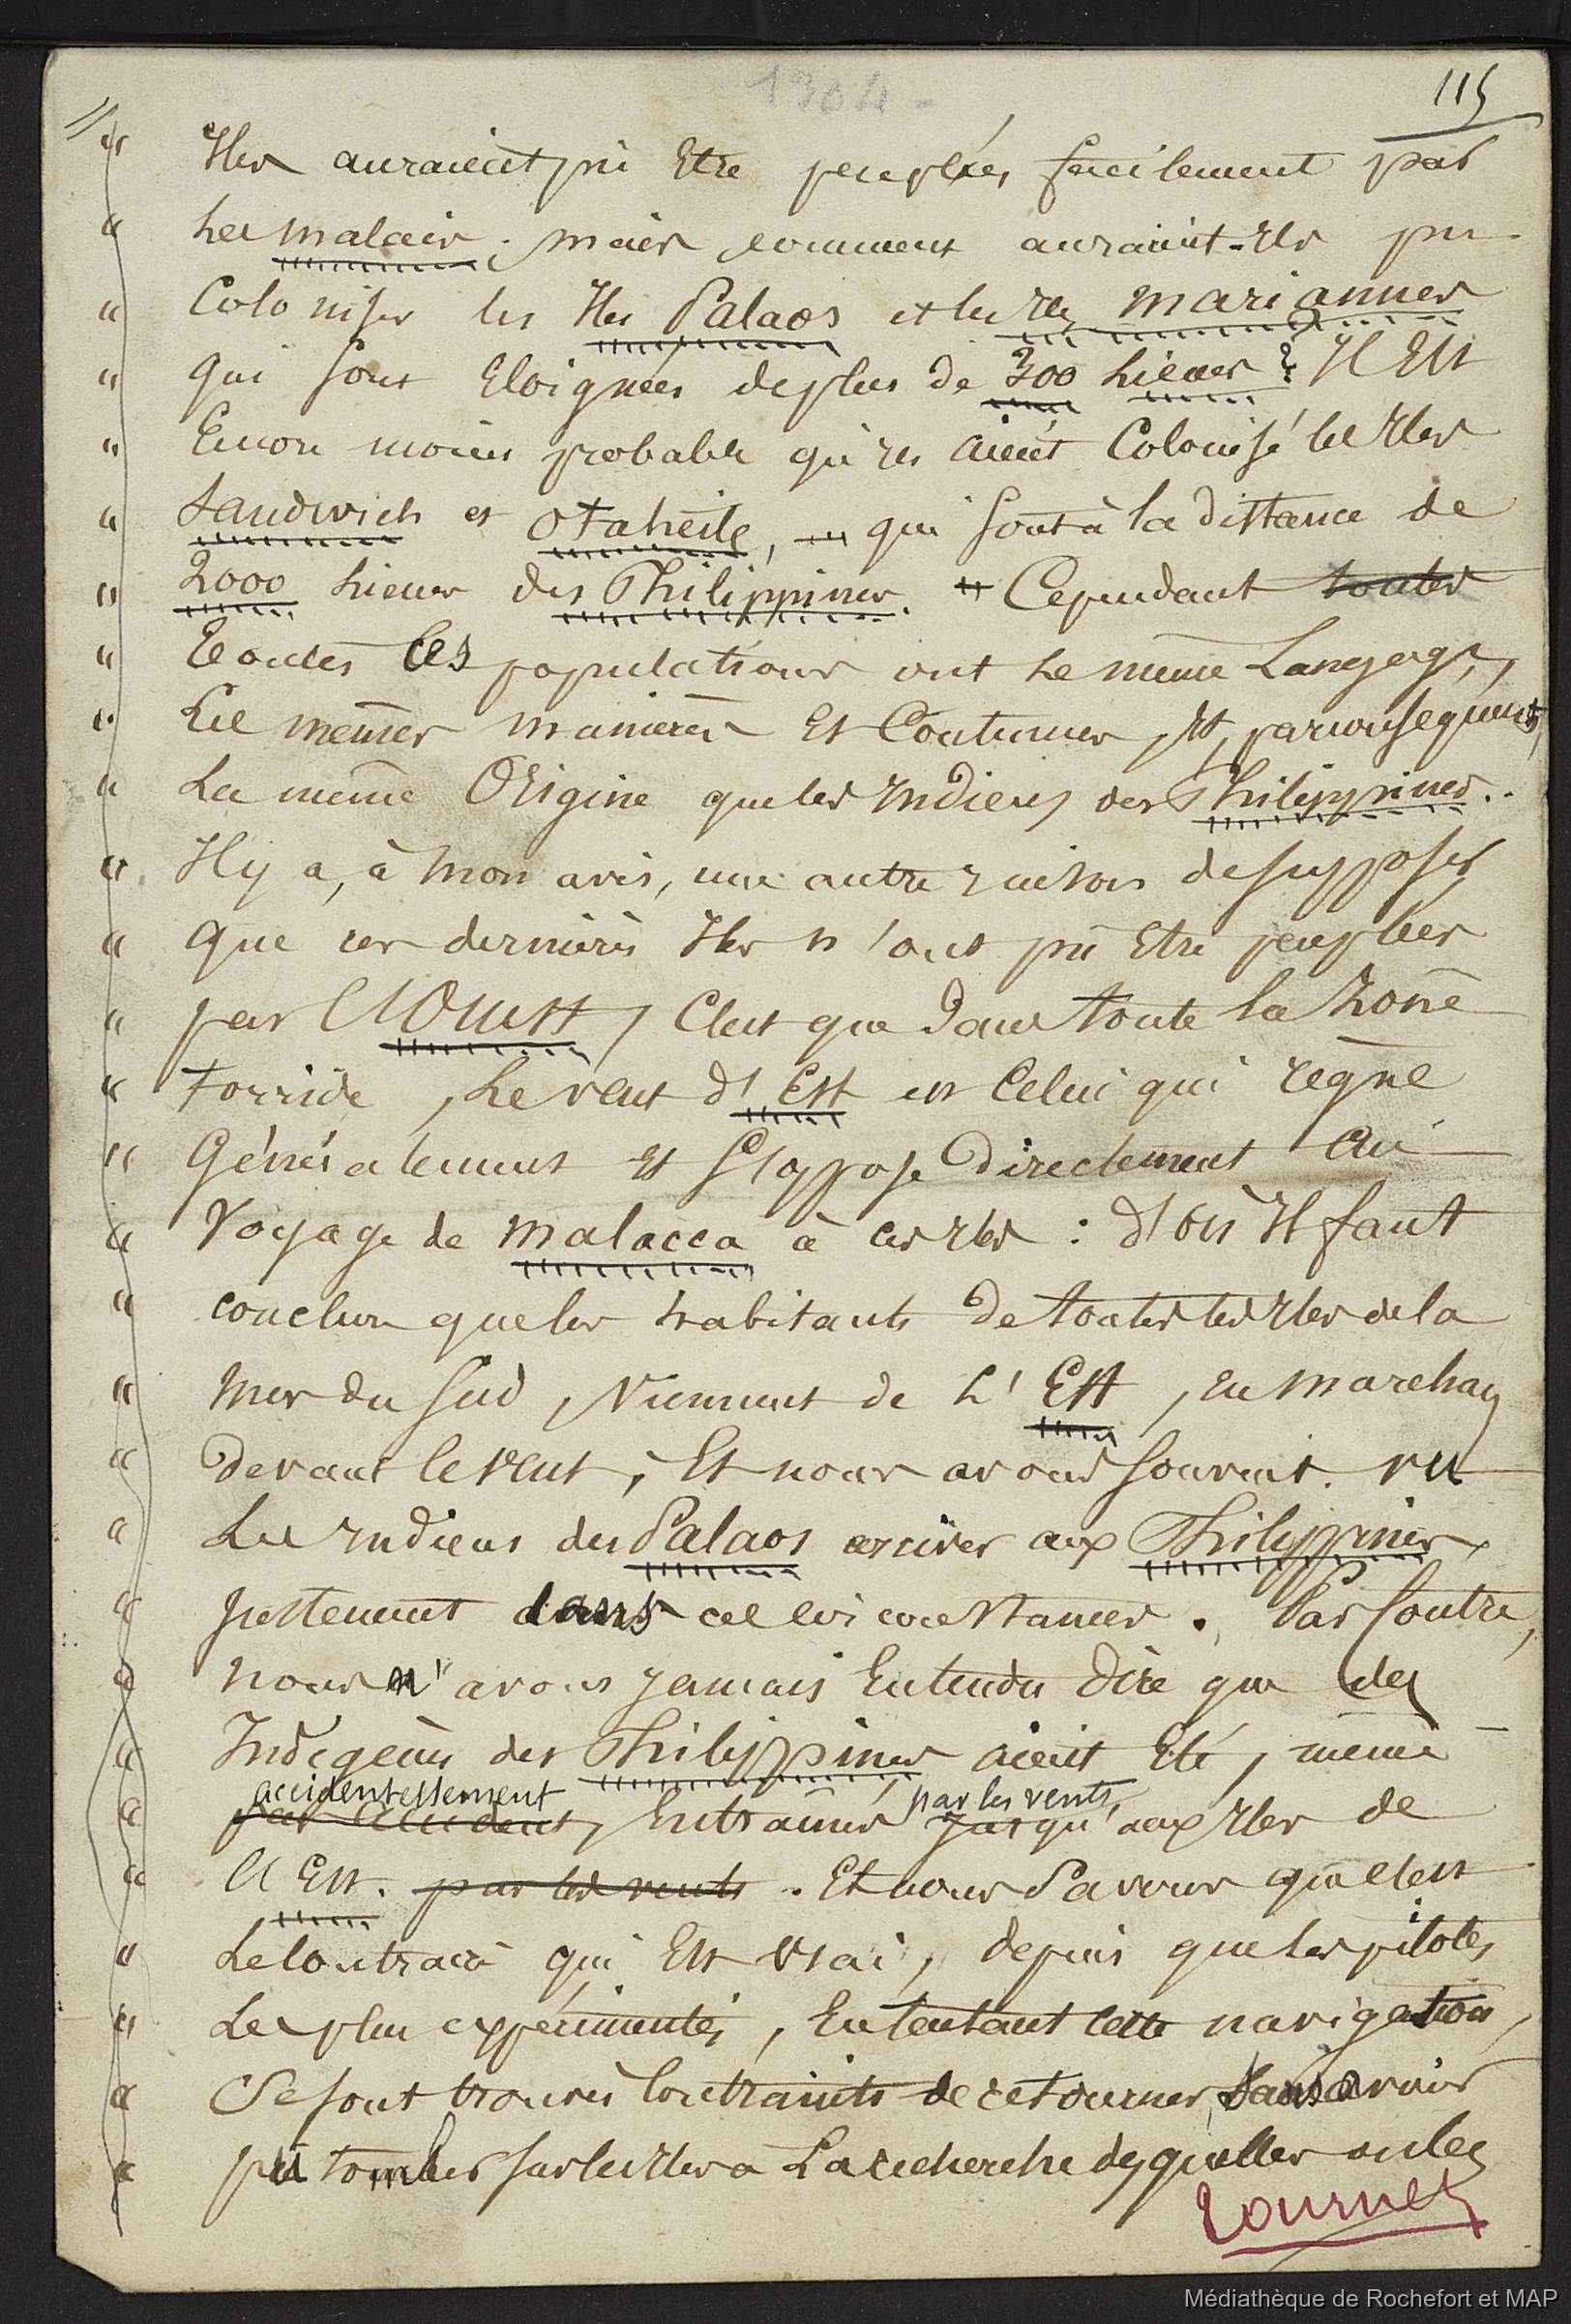 1304-
115
" Iles auraient pu Etre peuplées facilement par
" Les malais ; mais comment auraient-Ils pu
" Coloniser les Iles Palaos et les Iles mariannes
" qui sont Eloignées de plus de 300 Lieues ? Il Est
" Encore moins probable qu'ils aient Colonisé les Iles
" Sandwich et Otaheite, qui sont à la distance de
" 2000 Lieues des Philippines. " Cependant toutes
" Toutes ces populations ont le même Langage,
" Les mêmes manières Et Coutumes, Et, par conséquent,
" La même Origine que les Indiens des Philippines.
" Il y a, à mon avis, une autre raison de supposer
" que ces dernières Iles n'ont pu Etre peuplées
" par l'Ouest, C'est que dans toute la Zone
" Torride, Le vent d'Est est Celui qui règne
" Généralement Et s'oppose directement au
" Voyage de malacca à ces Iles : d'où Il faut
" conclure que les habitants de toutes les Iles de la
" Mer du Sud, viennent de L'Est, En marchant
" devant le vent ; Et nous avons souvent vu
" Les Indiens des Palaos arriver aux Philippines,
" Justement dans ces circonstances. Par Contre,
" nous n'avons jamais Entendu dire que des
" Indigènes des Philippines aient Eté, même
accidentellement par les vents,
" par accident, Entraînés jusqu'aux Iles de
" l'Est. par les vents. Et nous Savons que c'est
" Le Contraire qui Est vrai, depuis que les pilotes
" Les plus expérimentés, En tentant cette navigation,
" Se sont trouvés Contraints de retourner, sans avoir
" pu tomber sur les Iles à La recherche desquelles on les
tournez
Médiathèque de Rochefort et MAP